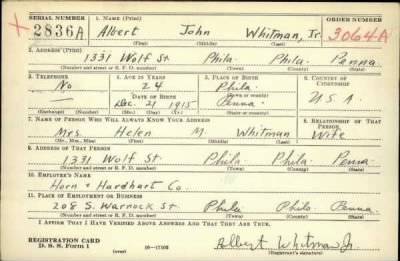 SERIAL NUMBER 1. NAME (Print) ORDER NUMBER
X 2836A Albert John Whitman, Jr. 3064A
(First) (Middle) (Last)
2. ADDRESS (Print)
1331 Wolf St. Phila. Phila. Penna.
(Number and street or R. F. D. number) (Town) (County) (State)
3. TELEPHONE 4. AGE IN YEARS 5. PLACE OF BIRTH 6. COUNTRY OF CITIZENSHIP
No 24 Phila.
DATE OF BIRTH (Town or county)
Dec. 21 1915 Penna. U.S.A.
(Exchange) (Number) (Mo.) (Day) (Yr.) (State or country)
7. NAME OF PERSON WHO WILL ALWAYS KNOW YOUR ADDRESS 8. RELATIONSHIP OF THAT PERSON
Mrs. Helen M. Whitman Wife
(Mr., Mrs., Miss) (First) (Middle) (Last)
9. ADDRESS OF THAT PERSON
1331 Wolf St. Phila Phila. Penna.
(Number and street or R. F. D. number) (Town) (County) (State)
10. EMPLOYER'S NAME
Horn + Hardhart Co.
11. PLACE OF EMPLOYMENT OR BUSINESS
208 S. Warnock St Phila. Phila. Penna.
(Number and street or R. F. D. number) (Town) (County) (State)
I AFFIRM THAT I HAVE VERIFIED ABOVE ANSWERS AND THAT THEY ARE TRUE.
REGISTRATION CARD
D. S. S. Form 1 (over) 16-17105 Albert Whitman Jr.
(Registrant's signature)